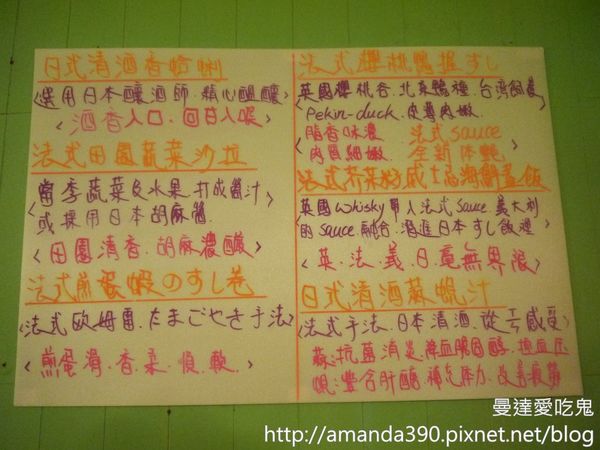 日式清酒香蛤蜊
<選用日本釀酒師.精心醞釀>
<酒香入口.回甘入喉>
法式田園蔬菜沙拉
<當季蔬菜及水果.打成醬汁
或採用日本胡麻醬>
<田園清香.胡麻濃醶>
法式煎蛋蝦のすし卷
<法式歐姆蛋.たまごやき手法>
<煎蛋滑.香.柔.Q.軟>
法式櫻桃鴨握すし
英國櫻桃谷.北京鴨種.台灣飼養
Pekin-duck.皮薄肉嫩
脂香味濃 法式sauce
肉質細嫩 全新体驗
法式芥茉籽威士忌海鮮蓋飯
英國whisky帶入法式sauce.義大利
的sauce融合.溜進日本すし飯裡
<英.法.義.日.毫無界限>
日式清酒蒜蜆汁
<法式手法.日本清酒.從舌感受>
蒜:抗菌消炎.降血脂固醇.抑血压
蜆:豐含肝醣.補充体力.改善疲勞
曼達愛吃鬼
http://amanda390.pixnet.net/blog